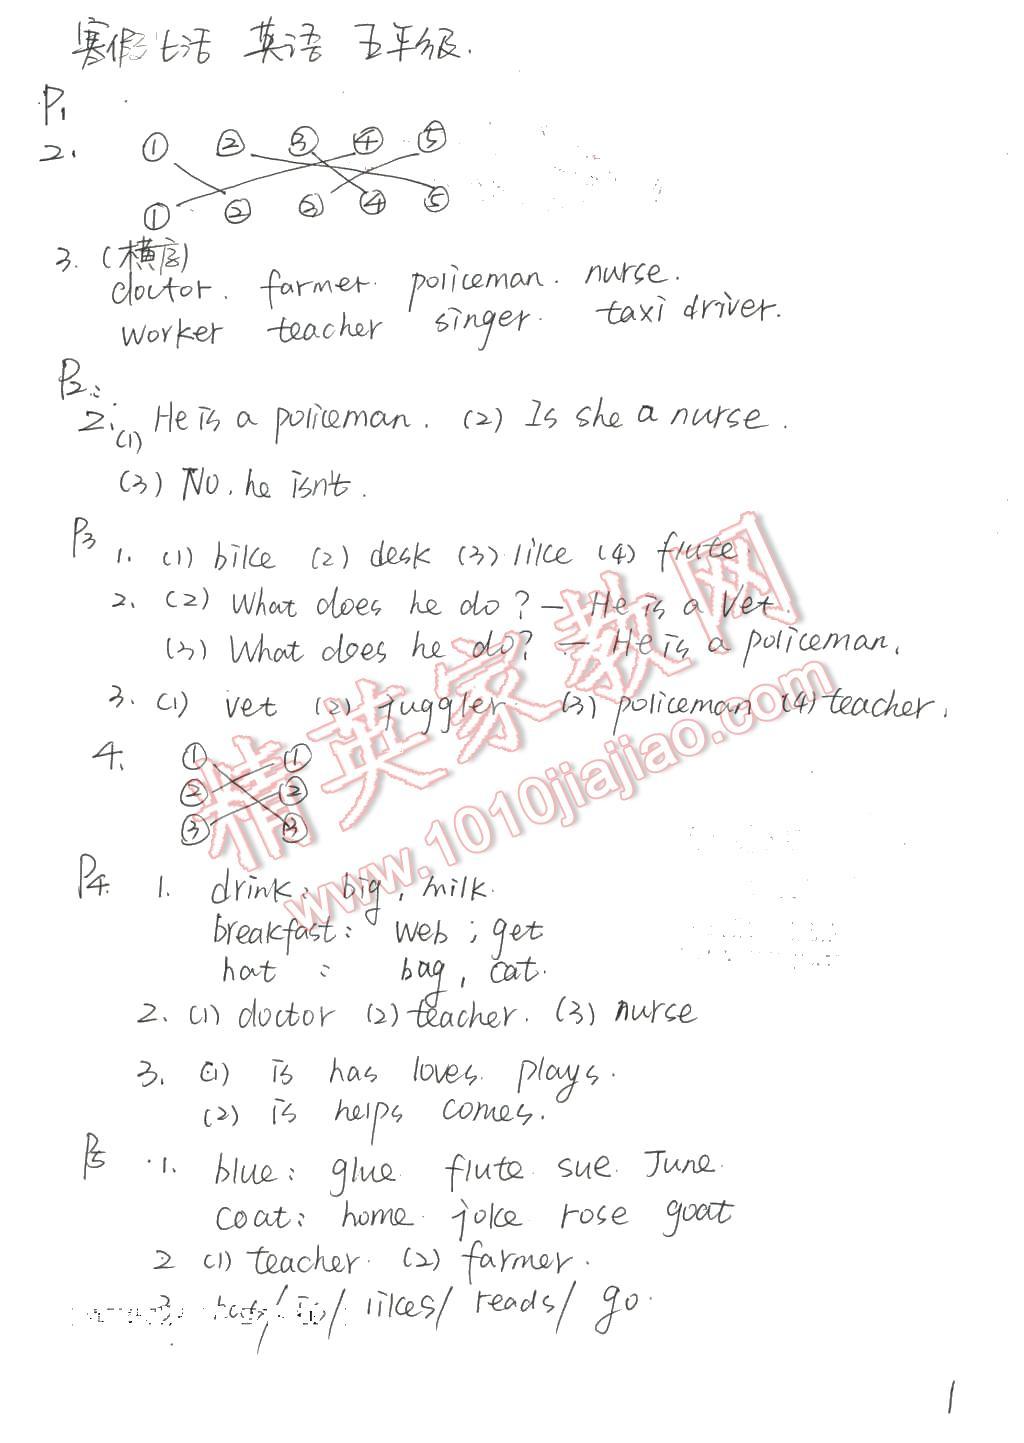 寒假生活 英语 五年级.
P1
2. ① ② ③ ④ ⑤
① ② ③ ④ ⑤
3. (横向)
doctor. farmer. policeman. nurse.
worker teacher singer. taxi driver.
P2:
2. (1) He is a policeman. (2) Is she a nurse.
(3) No, he isn't.
P3 1. (1) bike (2) desk (3) like (4) flute.
2. (2) What does he do? — He is a vet.
(3) What does he do? — He is a policeman.
3. (1) vet (2) juggler (3) policeman (4) teacher.
4. ① ①
② ②
③ ③
精英家教网
www.1010jiajiao.com
P4. 1. drink: big, milk.
breakfast: web ; get
hat : bag, cat.
2. (1) doctor (2) teacher. (3) nurse
3. (1) is has loves. plays.
(2) is helps comes.
P5 1. blue: glue flute sue June
coat: home joke rose goat
2 (1) teacher. (2) farmer.
3 has/ is/ likes/ reads/ go.
1